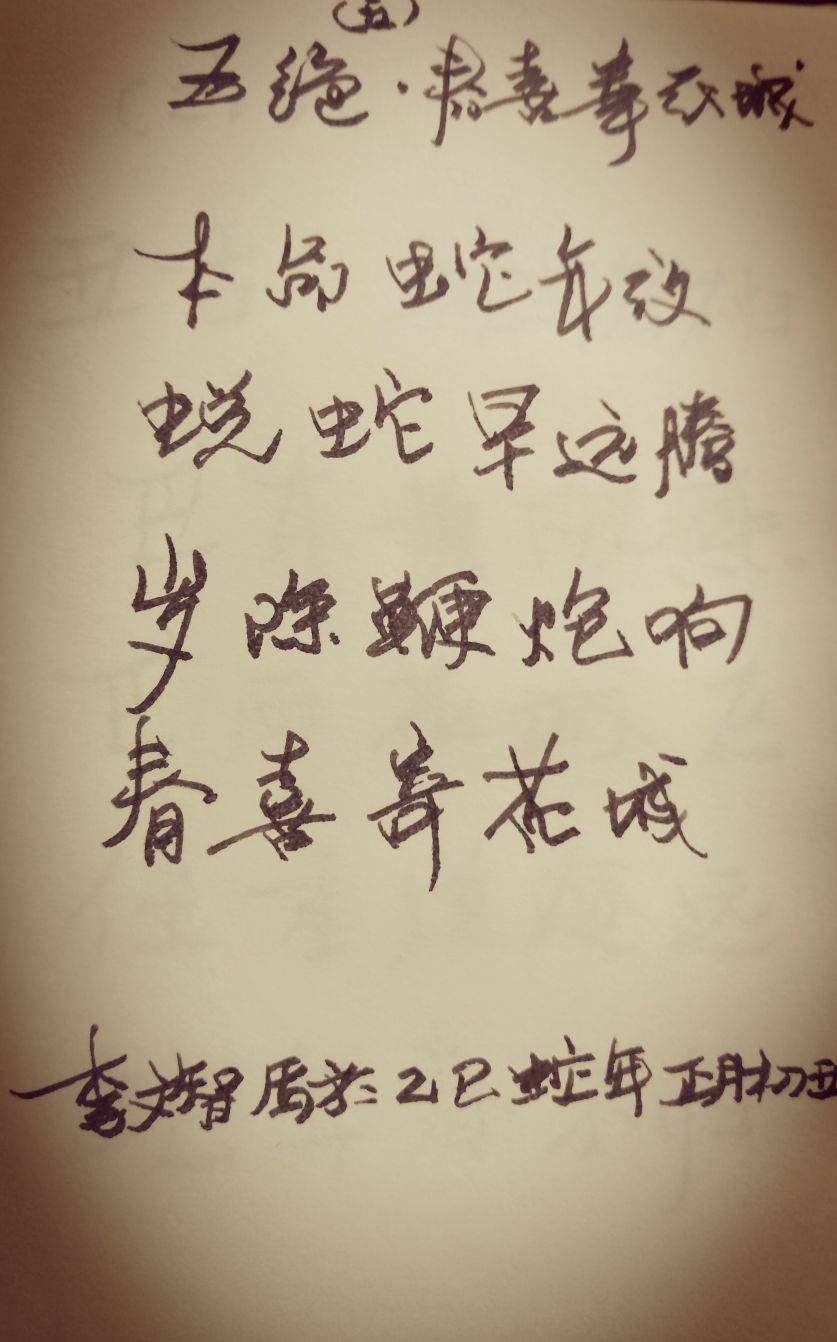 (五)
五绝·春喜寄花城
本命蛇年放
蜕蛇早远腾
岁除鞭炮响
春喜寄花城
李文智 于乙巳蛇年正月初五